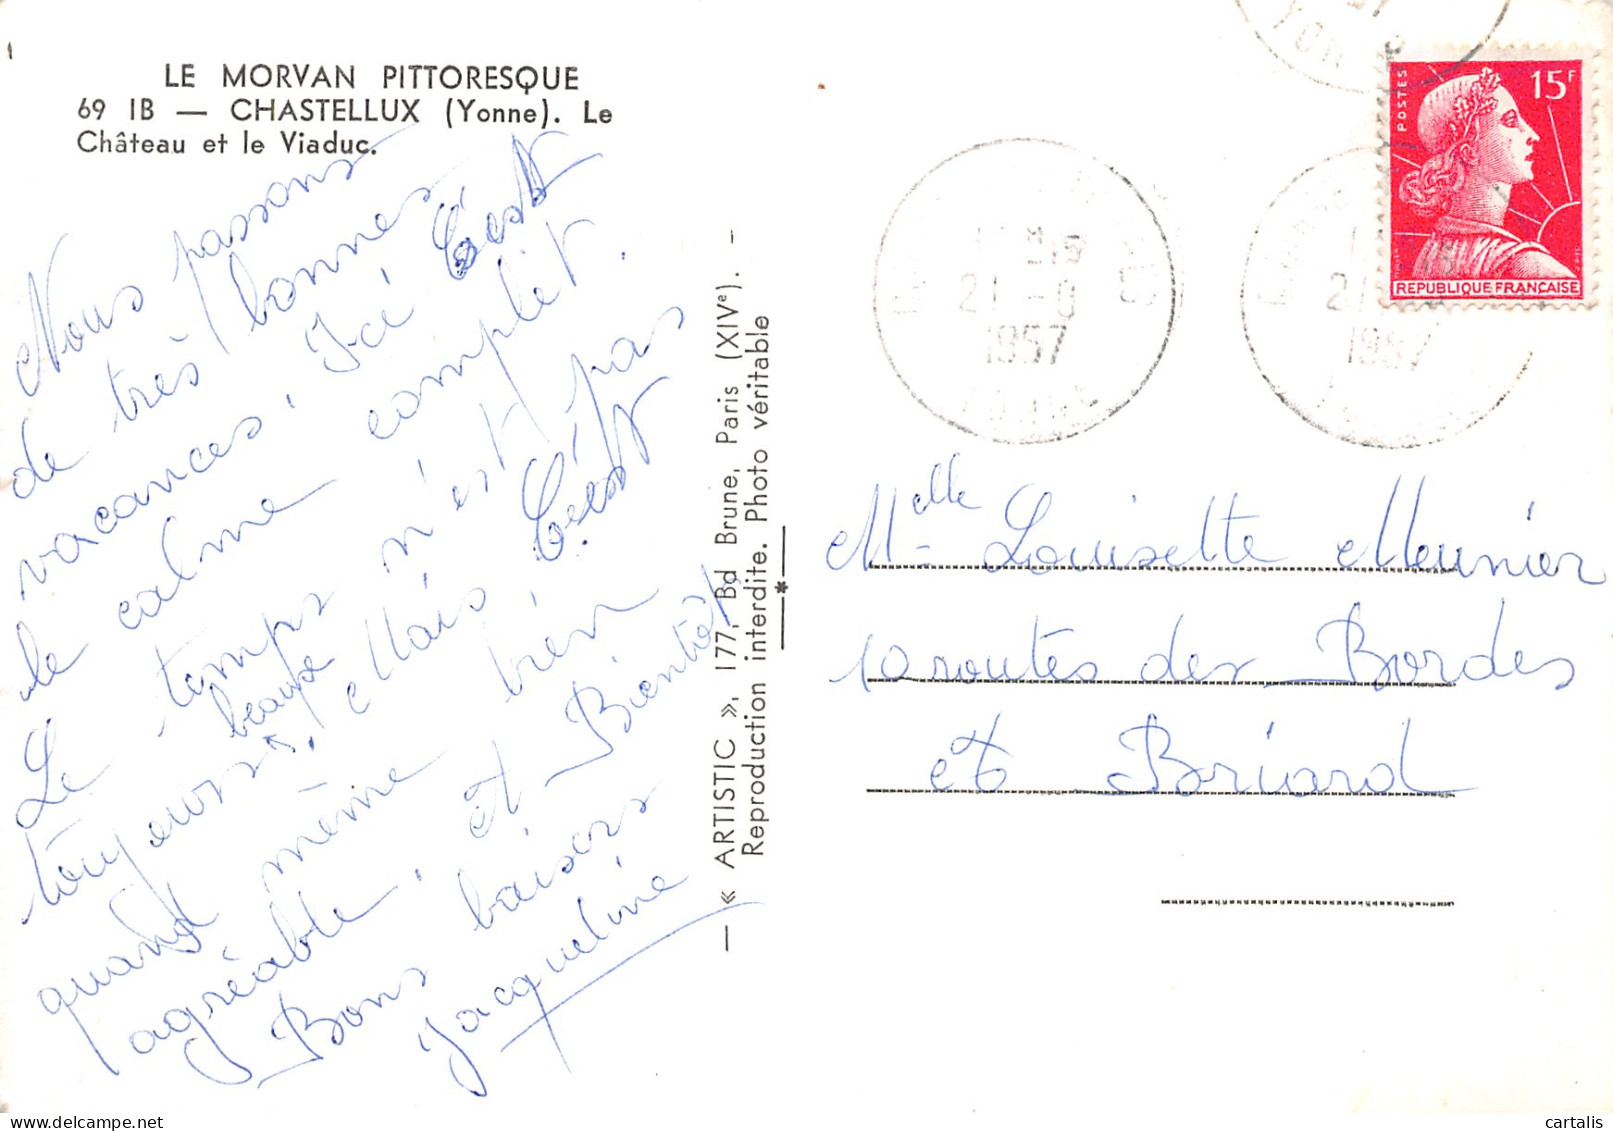 LE MORVAN PITTORESQUE
69 IB — CHASTELLUX (Yonne). Le
Château et le Viaduc.
Nous passons
de très bonnes
vacances. Ici C'est
le calme complet.
Le temps n'est pas
toujours beau. Mais C'est
quand même bien
agréable. et Bientôt
Bons baisers
Jacqueline
— « ARTISTIC », 177, Bd Brune, Paris (XIVe). —
Reproduction interdite. Photo véritable
POSTES
15F
REPUBLIQUE FRANÇAISE
1957
Melle Louisette Meunier
10 routes des Bordes
et Briard
cartalis